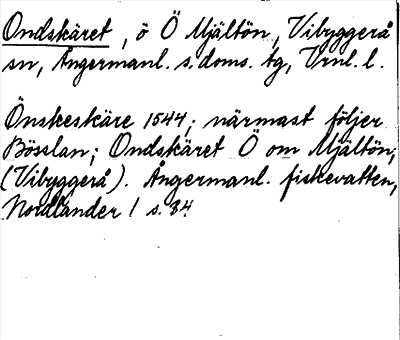 Ondskäret, ö Ö Mjältön, Vibyggerå
sn, Ångermanl. s. doms. tg, Vrnl. l.
Önskeskäre 1544; närmast följer
Bösslan; Ondskäret Ö om Mjältön;
(Vibyggerå). Ångermanl. fiskevatten,
Nordlander 1 s. 84